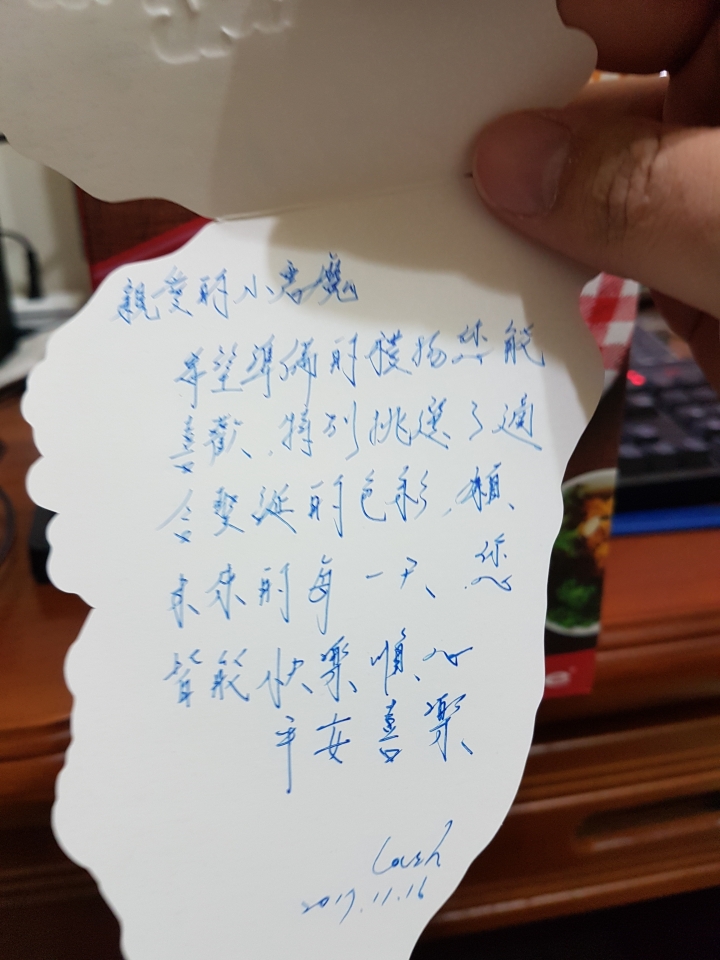 親愛的小惡魔
希望準備的禮物您能
喜歡,特別挑選了適
合聖誕的色彩,願
未來的每一天、您
皆能快樂順心
平安喜樂
2017.11.16